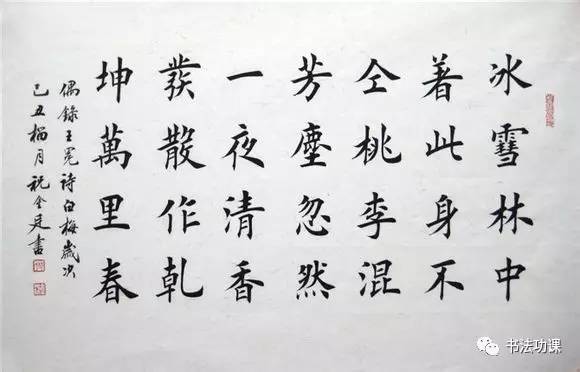 冰雪林中
著此身不
仝桃李混
芳塵忽然
一夜清香
發散作乾
坤萬里春
偶錄王冕詩白梅歲次
己丑榴月祝書
书法功课